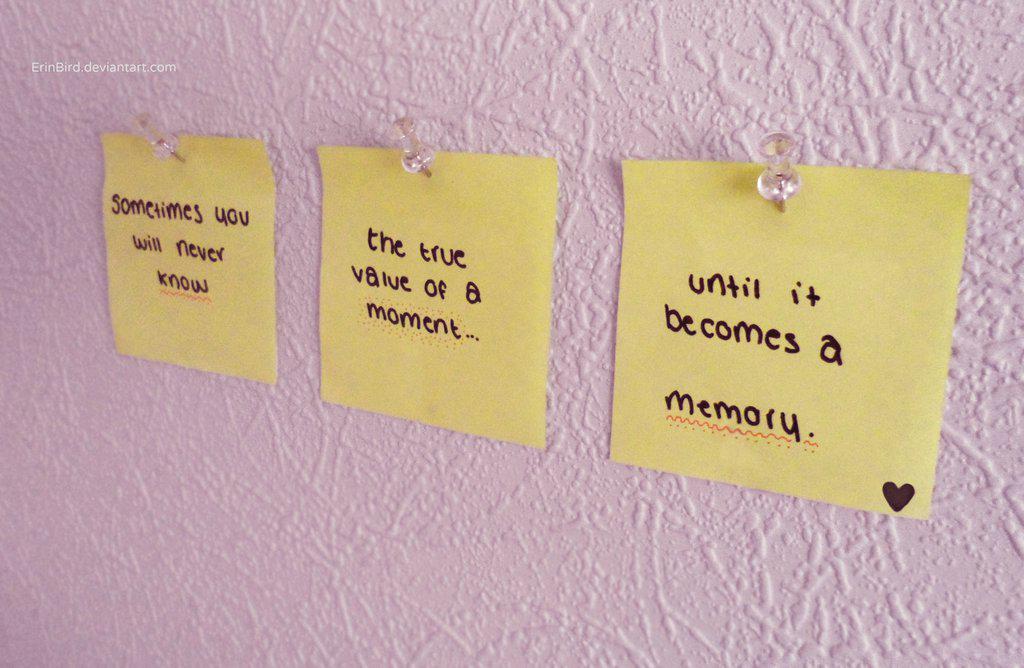 ErinBird.deviantart.com
sometimes you
will never
know
the true
value of a
moment...
until it
becomes a
memory.